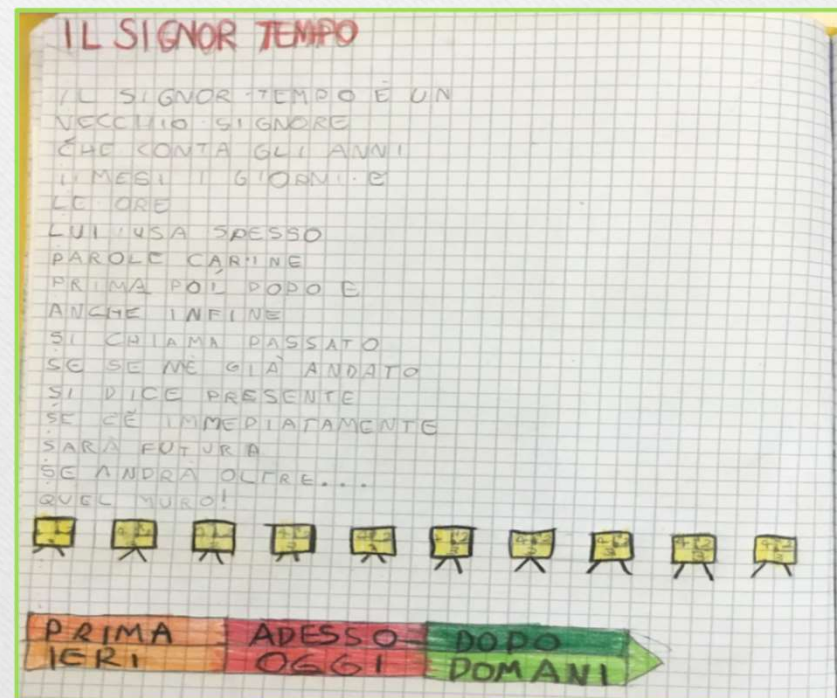 IL SIGNOR TEMPO
IL SIGNOR TEMPO È UN
VECCHIO SIGNORE
CHE CONTA GLI ANNI
I MESI I GIORNI E
LE ORE
LUI USA SPESSO
PAROLE CARINE
PRIMA POI DOPO E
ANCHE INFINE
SI CHIAMA PASSATO
SE SE NÈ GIÀ ANDATO
SI DICE PRESENTE
SE CÈ IMMEDIATAMENTE
SARÀ FUTURA
SE ANDRA OLTRE...
QUEL MURO!
PRIMA ADESSO DOPO
IERI OGGI DOMANI